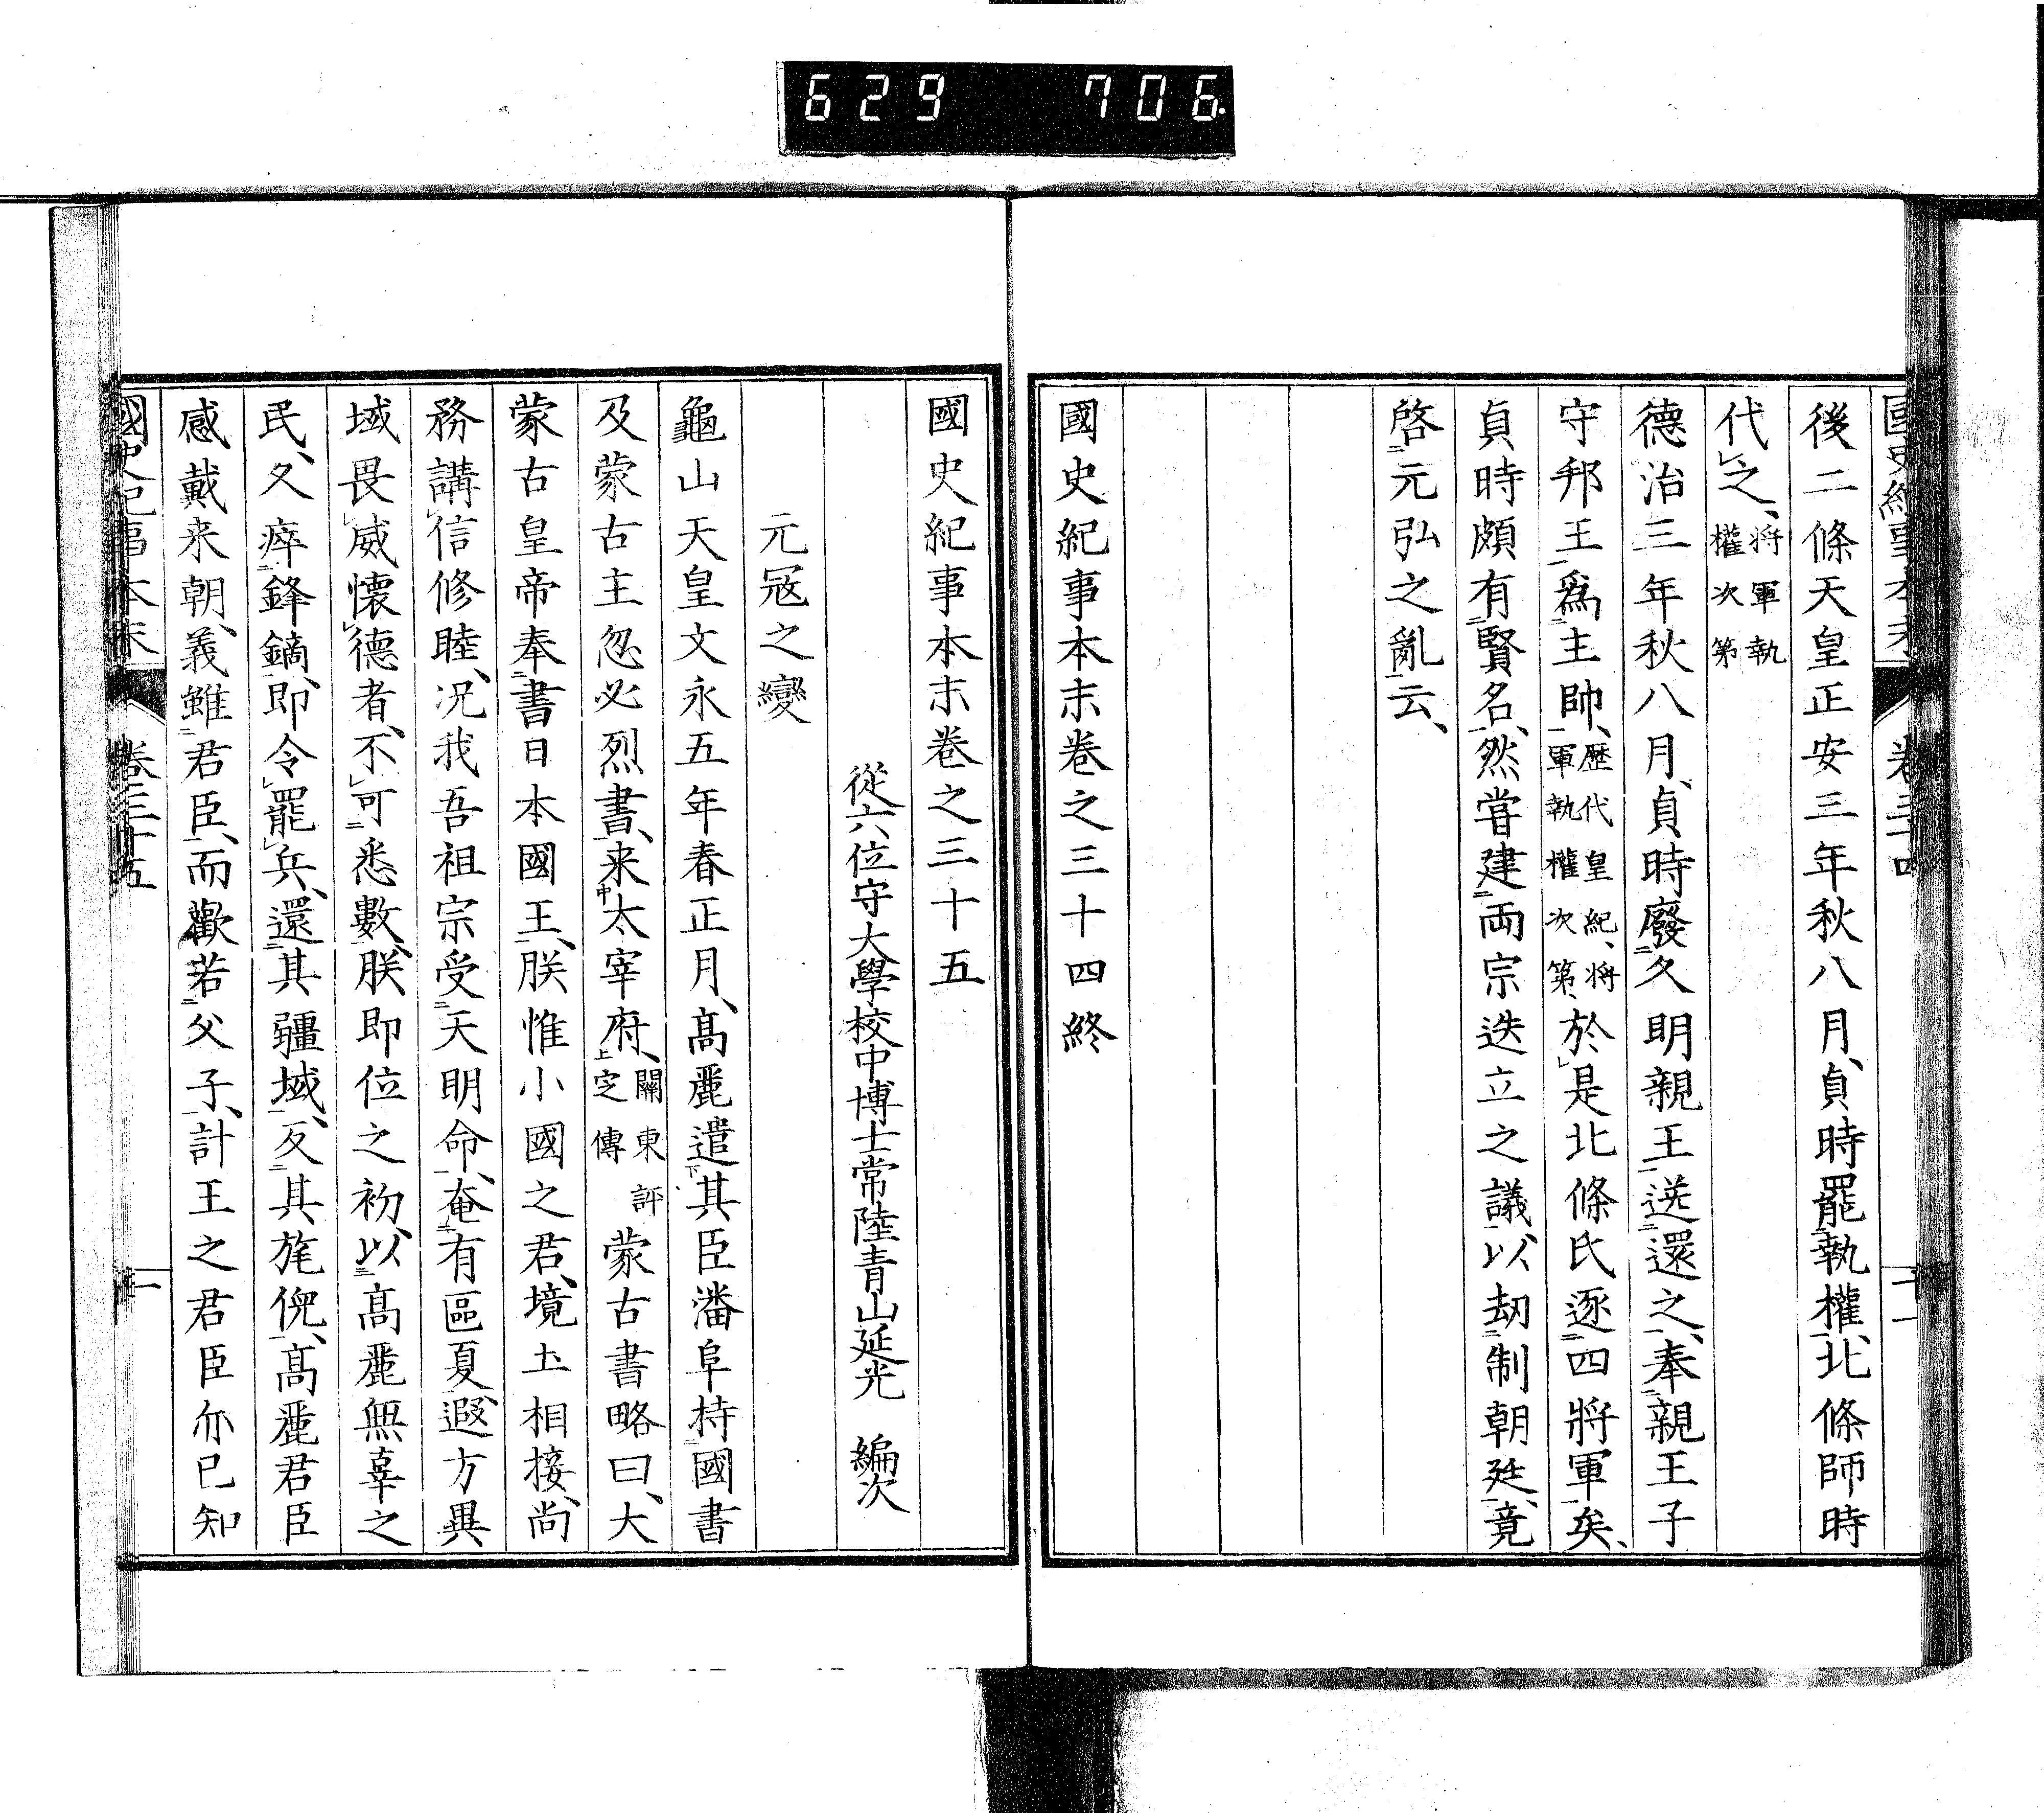 629 706
國史紀事本末 卷三十四 十一
後二條天皇正安三年秋八月、貞時罷執權、北條師時
代之、將軍執權次第
德治三年秋八月、貞時廢久明親王送還之、奉親王子
守邦王爲主帥、歷代皇紀、將軍執權次第、於是北條氏逐四將軍矣、
貞時頗有賢名、然甞建兩宗迭立之議、以刼制朝廷、竟
啓元弘之亂云、
國史紀事本末卷之三十四終
國史紀事本末卷之三十五
從六位守大學校中博士常陸青山延光 編次
元冦之變
龜山天皇文永五年春正月、髙麗遣其臣潘阜持國書
及蒙古主忽必烈書、来太宰府、關東評定傳 蒙古書略曰、大
蒙古皇帝奉書日本國王、朕惟小國之君、境土相接、尚
務講信修睦、况我吾祖宗受天明命、奄有區夏、遐方異
域畏威懷德者、不可悉數、朕即位之初、以髙麗無辜之
民、久瘁鋒鏑、即令罷兵、還其疆域、反其旄倪、髙麗君臣
感戴来朝、義雖君臣、而歡若父子、計王之君臣亦已知
國史紀事本末 卷三十五 一